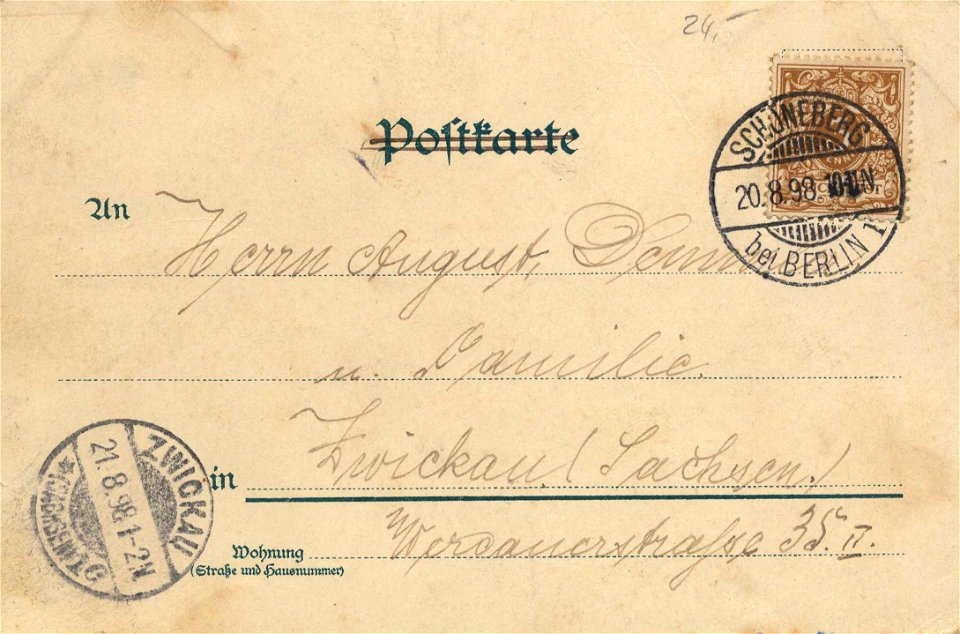 24,-
Postkarte
SCHÖNEBERG
20.8.98. 10-11N
bei BERLIN 1
An
Herrn August
u. Familie.
in Zwickau (Sachsen)
Werdauerstraße 35. II.
Wohnung
(Straße und Hausnummer)
ZWICKAU
21.8.98. 1-2N
(SACHSEN)